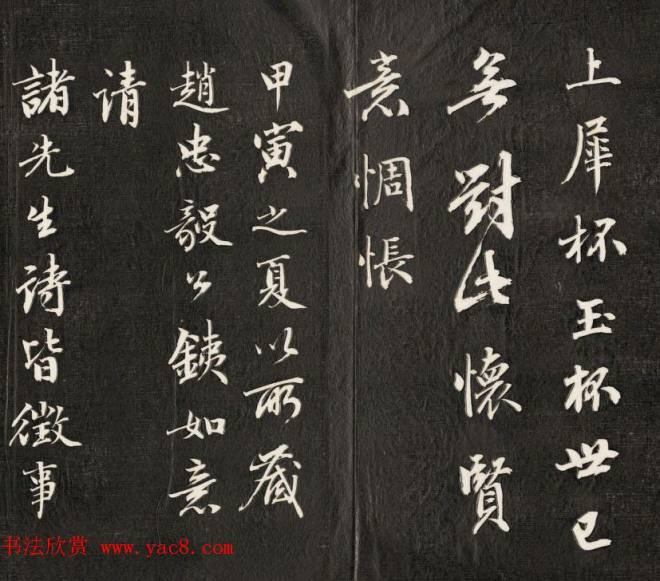 上犀杯玉杯世已
無對此懷賢
意惆悵
甲寅之夏以所藏
趙忠毅公銕如意
请
諸先生诗皆徵事
书法欣赏 www.yac8.com